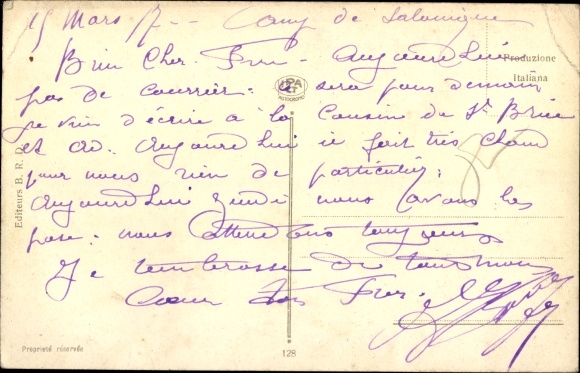 15 Mars 17 - Camp de Salonique
Bien Cher Frère - Aujourd'hui
pas de courrier. sera pour demain
je vien d'écrire à la Cousine de St Brice
et Aujourd'hui il fait très chaud
pour nous rien de particulier.
Aujourd'hui Jeudi nous avons les
pose. nous attendons toujours
Je t'embrasse de tout mon
Coeur ton Frère.
Produzione
Italiana
Editeurs B. R. D.
Proprieté réservée
128